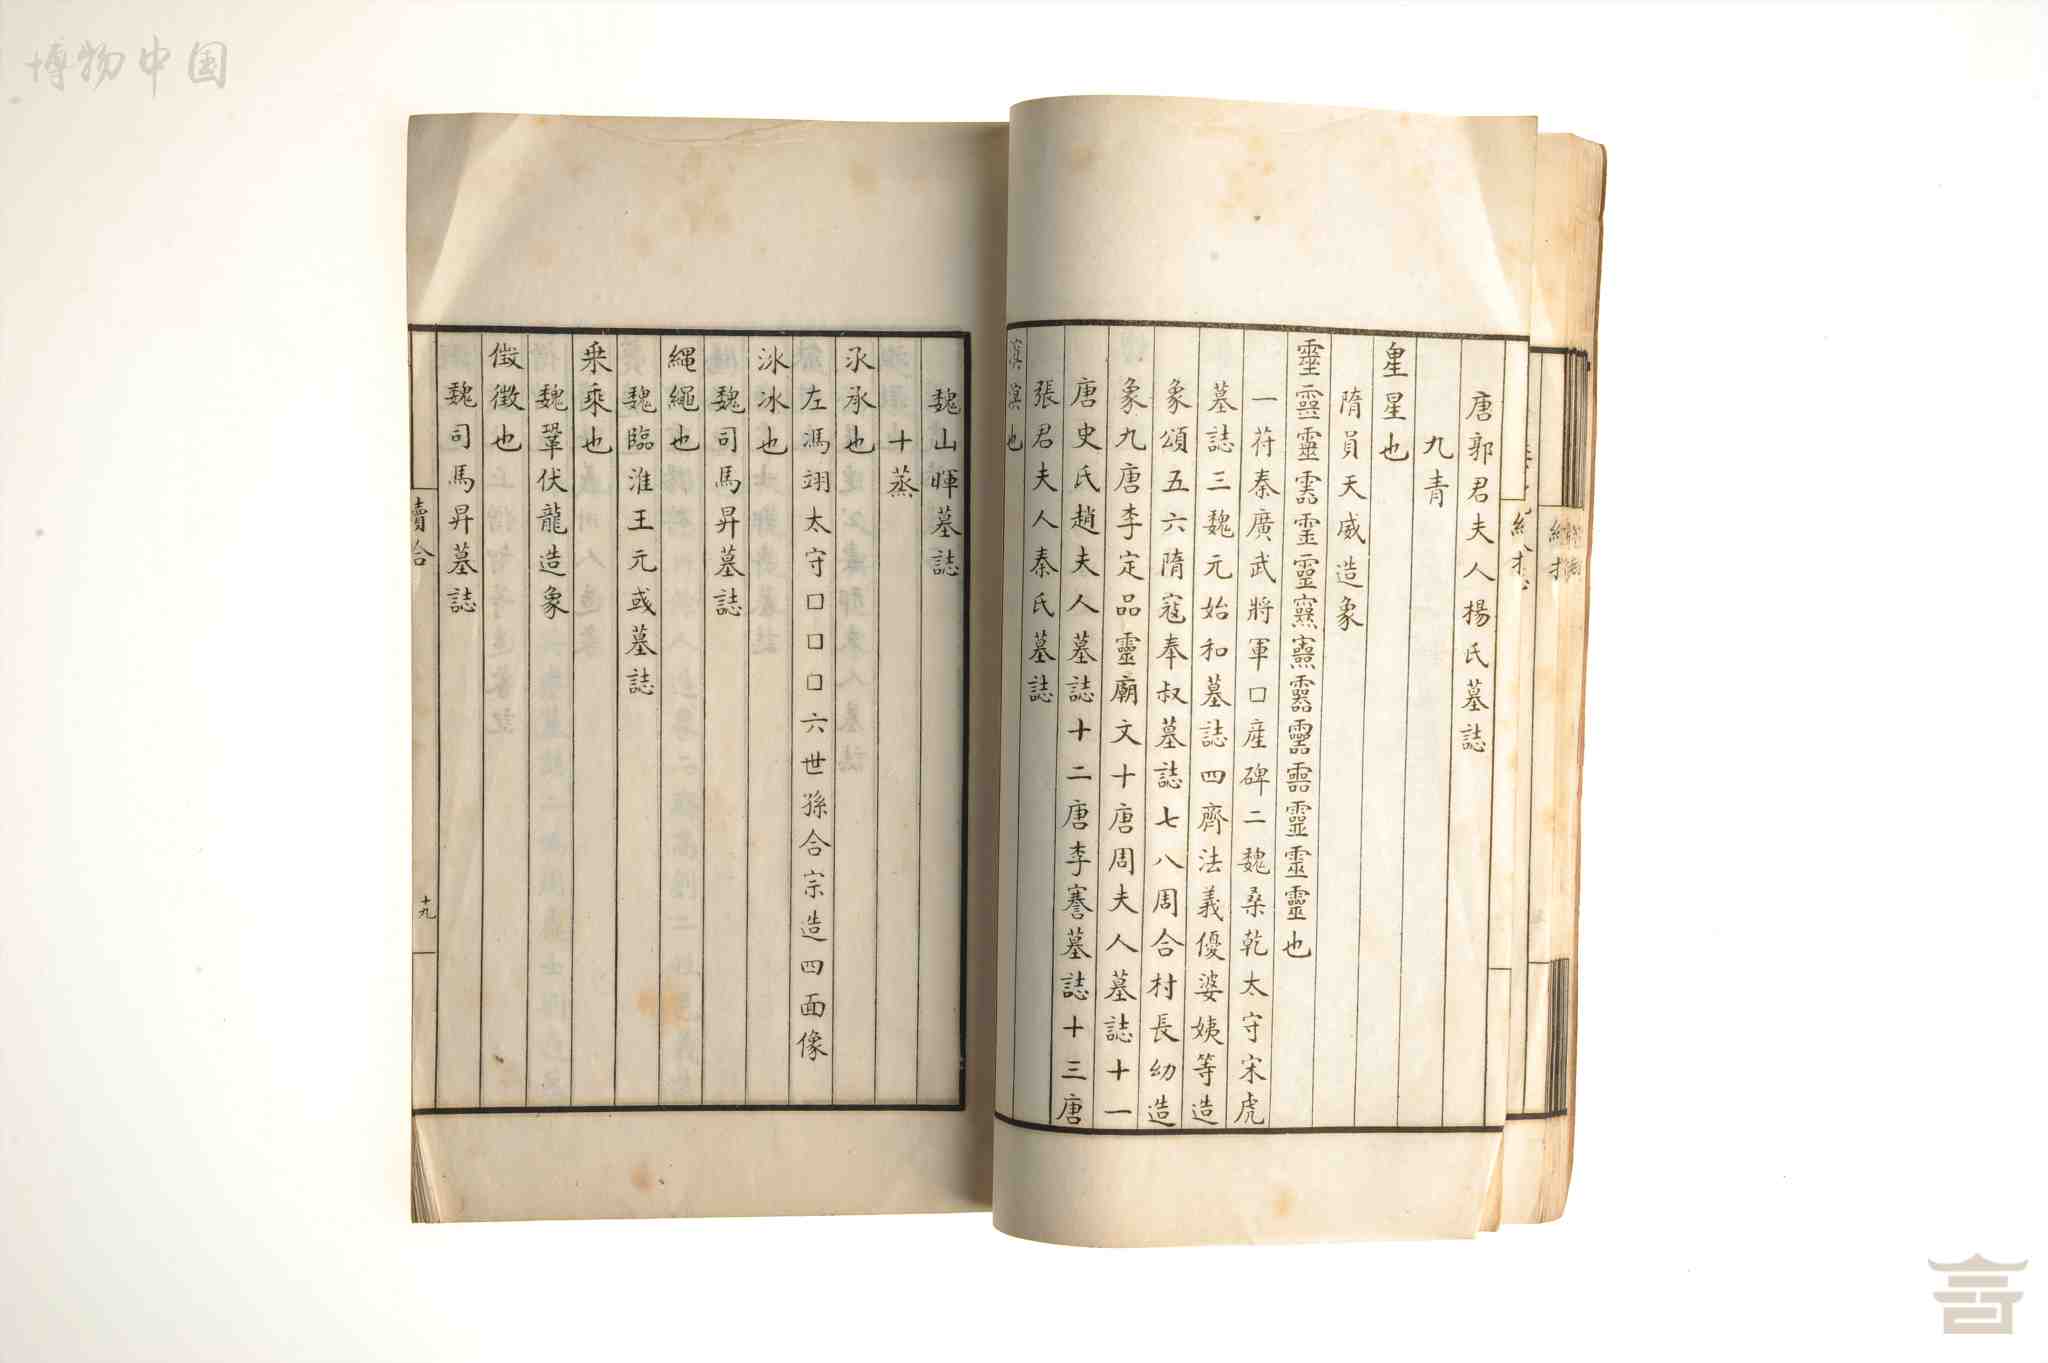 博物中国
唐郭君夫人楊氏墓誌
九青
皨星也
隋員天威造象
靈也
一苻秦廣武將軍口産碑二魏桑乾太守宋虎
墓誌三魏元始和墓誌四齊法義優婆姨等造
象頌五六隋寇奉叔墓誌七八周合村長幼造
象九唐李定品靈廟文十唐周夫人墓誌十一
唐史氏趙夫人墓誌十二唐李謇墓誌十三唐
張君夫人秦氏墓誌
溟也
魏山暉墓誌
十蒸
氶承也
左馮翊太守口口口六世孫合宗造四面像
氷冰也
魏司馬昇墓誌
縄繩也
魏臨淮王元彧墓誌
乗乘也
魏鞏伏龍造象
徴徵也
魏司馬昇墓誌
續合
十九